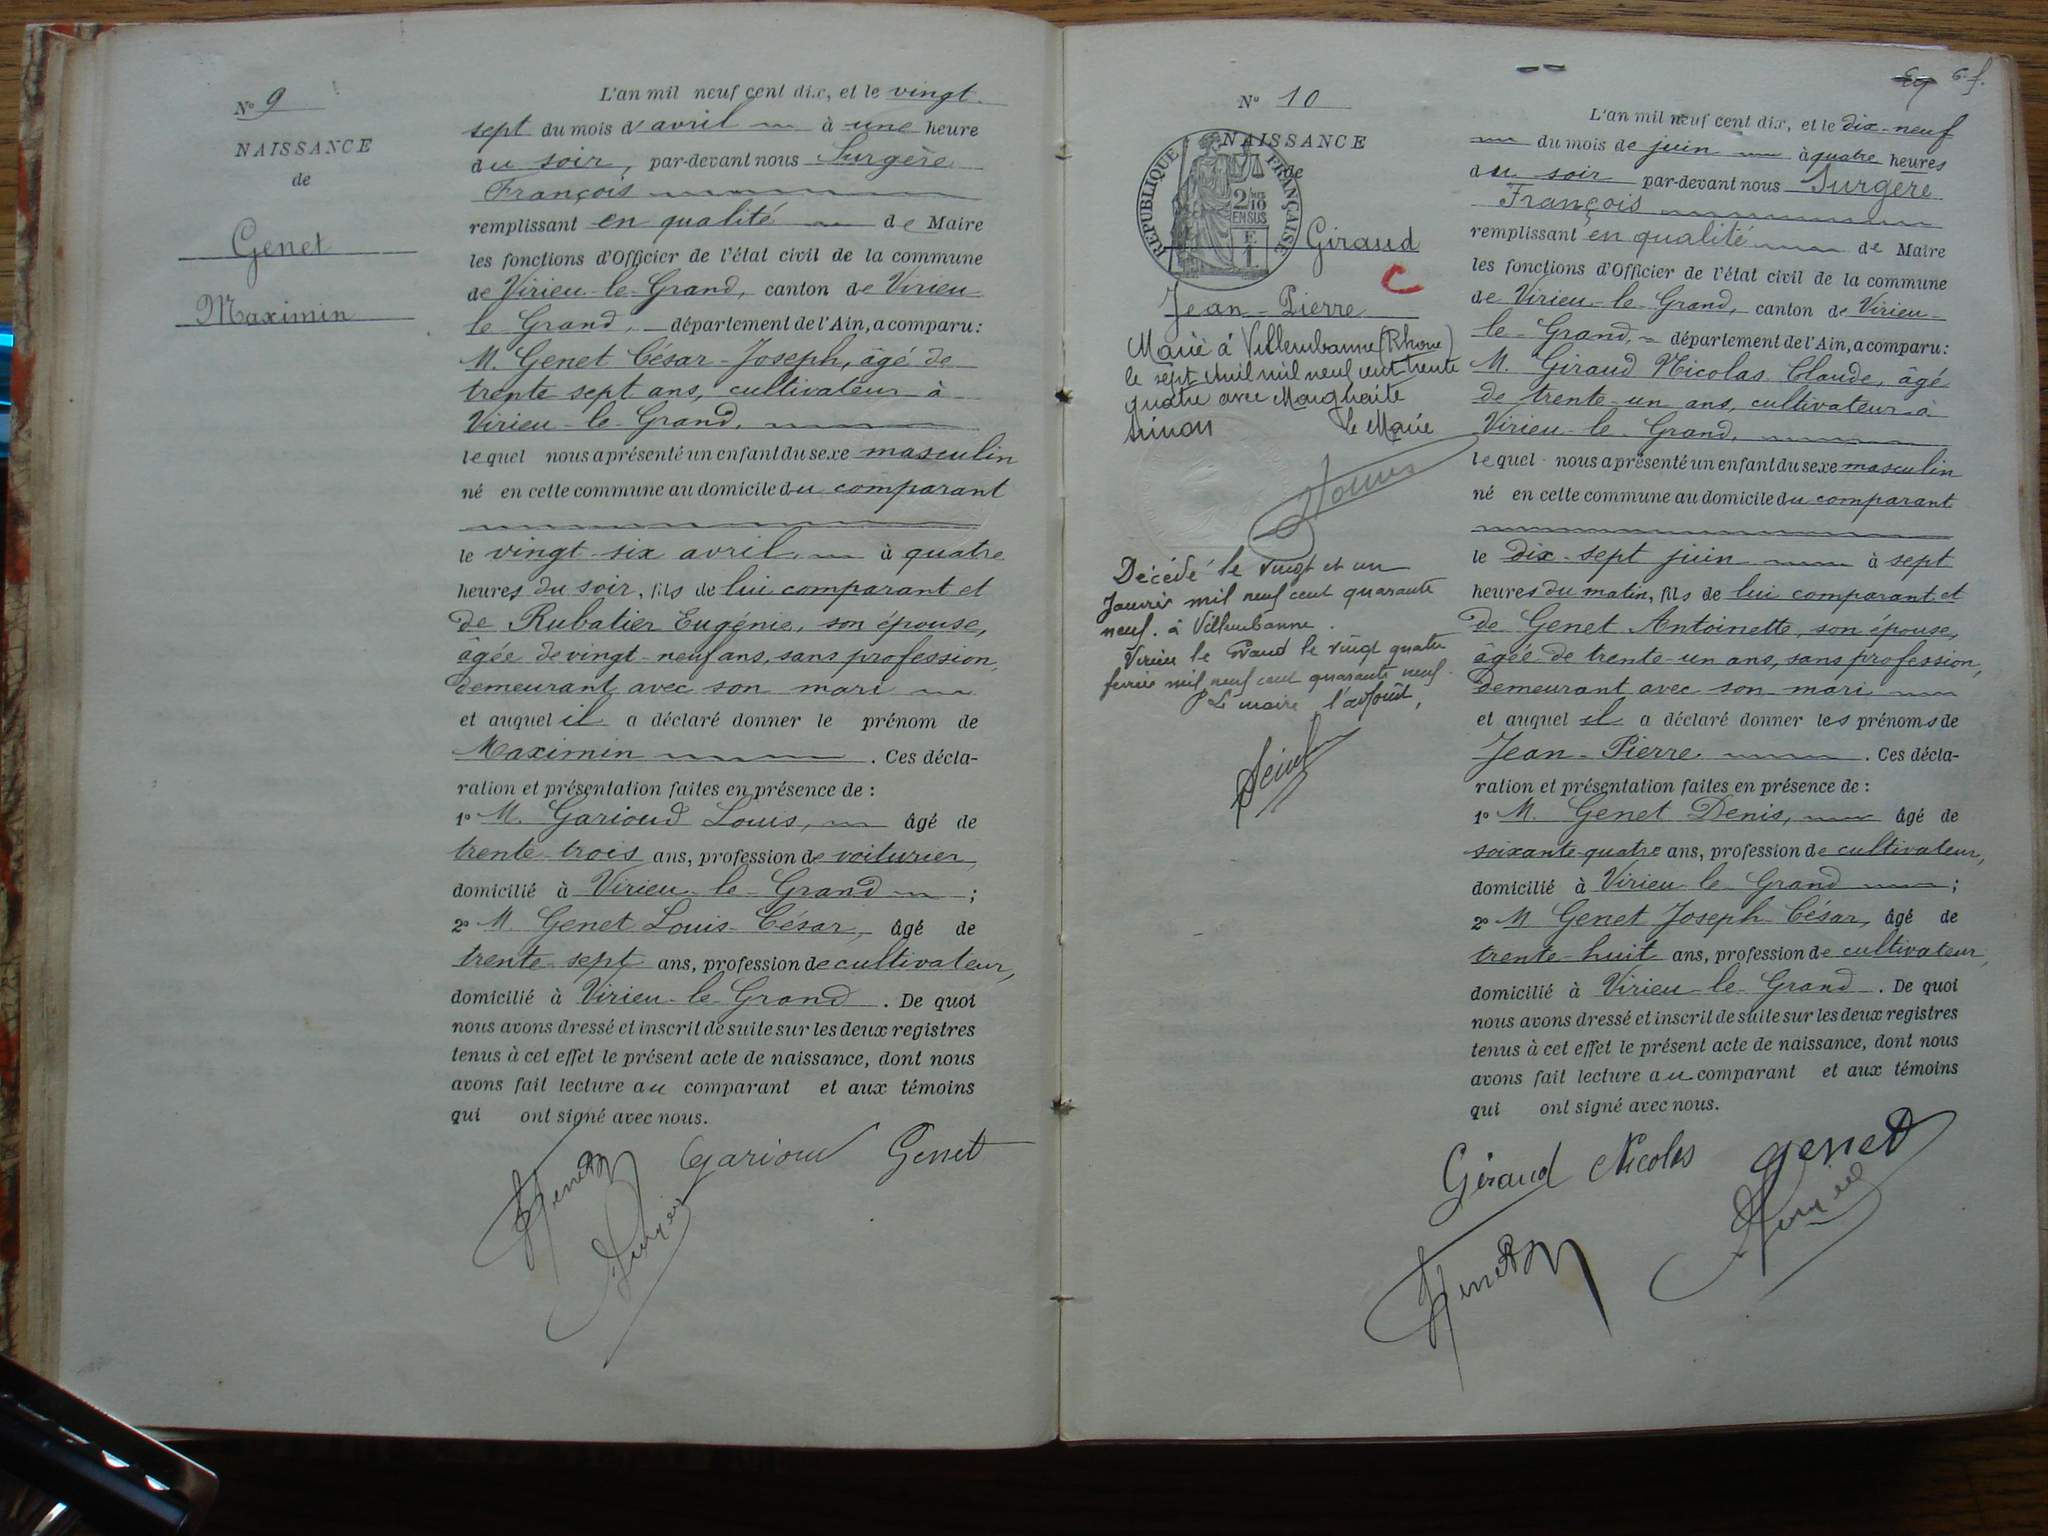 N° 9
NAISSANCE
de
Genet
Maximin
L'an mil neuf cent dix, et le vingt
sept du mois d'avril à une heure
du soir, par-devant nous Surgère
François
remplissant en qualité de Maire
les fonctions d'Officier de l'état civil de la commune
de Virieu-le-Grand, canton de Virieu-
le Grand, département de l'Ain, a comparu:
M. Genet César-Joseph, âgé de
trente sept ans, cultivateur à
Virieu-le-Grand,
lequel nous a présenté un enfant du sexe masculin
né en cette commune au domicile du comparant
le vingt-six avril à quatre
heures du soir, fils de lui comparant et
de Rubatier Eugénie, son épouse,
âgée de vingt-neuf ans, sans profession,
demeurant avec son mari
et auquel il a déclaré donner le prénom de
Maximin. Ces décla-
ration et présentation faites en présence de :
1° M. Garioud Louis, âgé de
trente-trois ans, profession de voiturier,
domicilié à Virieu-le-Grand ;
2° M. Genet Louis-César, âgé de
trente-sept ans, profession de cultivateur,
domicilié à Virieu-le-Grand. De quoi
nous avons dressé et inscrit de suite sur les deux registres
tenus à cet effet le présent acte de naissance, dont nous
avons fait lecture au comparant et aux témoins
qui ont signé avec nous.
Garioud Genet
6 f.
N° 10
NAISSANCE
de
RÉPUBLIQUE FRANÇAISE
2/10
EN SUS
E
1.
Giraud
C
Jean-Pierre
Marié à Villeurbanne (Rhône)
le sept avril mil neuf cent trente
quatre avec Marguerite
Simon le Maire
Décédé le vingt et un
Janvier mil neuf cent quarante
neuf. à Villeurbanne.
Virieu le Grand le vingt quatre
fevrier mil neuf cent quarante neuf.
P Le maire l'adjoint,
L'an mil neuf cent dix, et le dix-neuf
du mois de juin à quatre heures
du soir par-devant nous Surgère
François
remplissant en qualité de Maire
les fonctions d'Officier de l'état civil de la commune
de Virieu-le-Grand, canton de Virieu-
le-Grand, département de l'Ain, a comparu:
M. Giraud Nicolas Claude, âgé
de trente-un ans, cultivateur à
Virieu-le-Grand,
lequel nous a présenté un enfant du sexe masculin
né en cette commune au domicile du comparant
le dix-sept juin à sept
heures du matin, fils de lui comparant et
de Genet Antoinette, son épouse,
âgée de trente-un ans, sans profession,
demeurant avec son mari
et auquel il a déclaré donner les prénoms de
Jean-Pierre. Ces décla-
ration et présentation faites en présence de :
1° M. Genet Denis, âgé de
soixante-quatre ans, profession de cultivateur,
domicilié à Virieu-le-Grand ;
2° M Genet Joseph-César, âgé de
trente-huit ans, profession de cultivateur,
domicilié à Virieu-le-Grand. De quoi
nous avons dressé et inscrit de suite sur les deux registres
tenus à cet effet le présent acte de naissance, dont nous
avons fait lecture au comparant et aux témoins
qui ont signé avec nous.
Giraud Nicolas genet